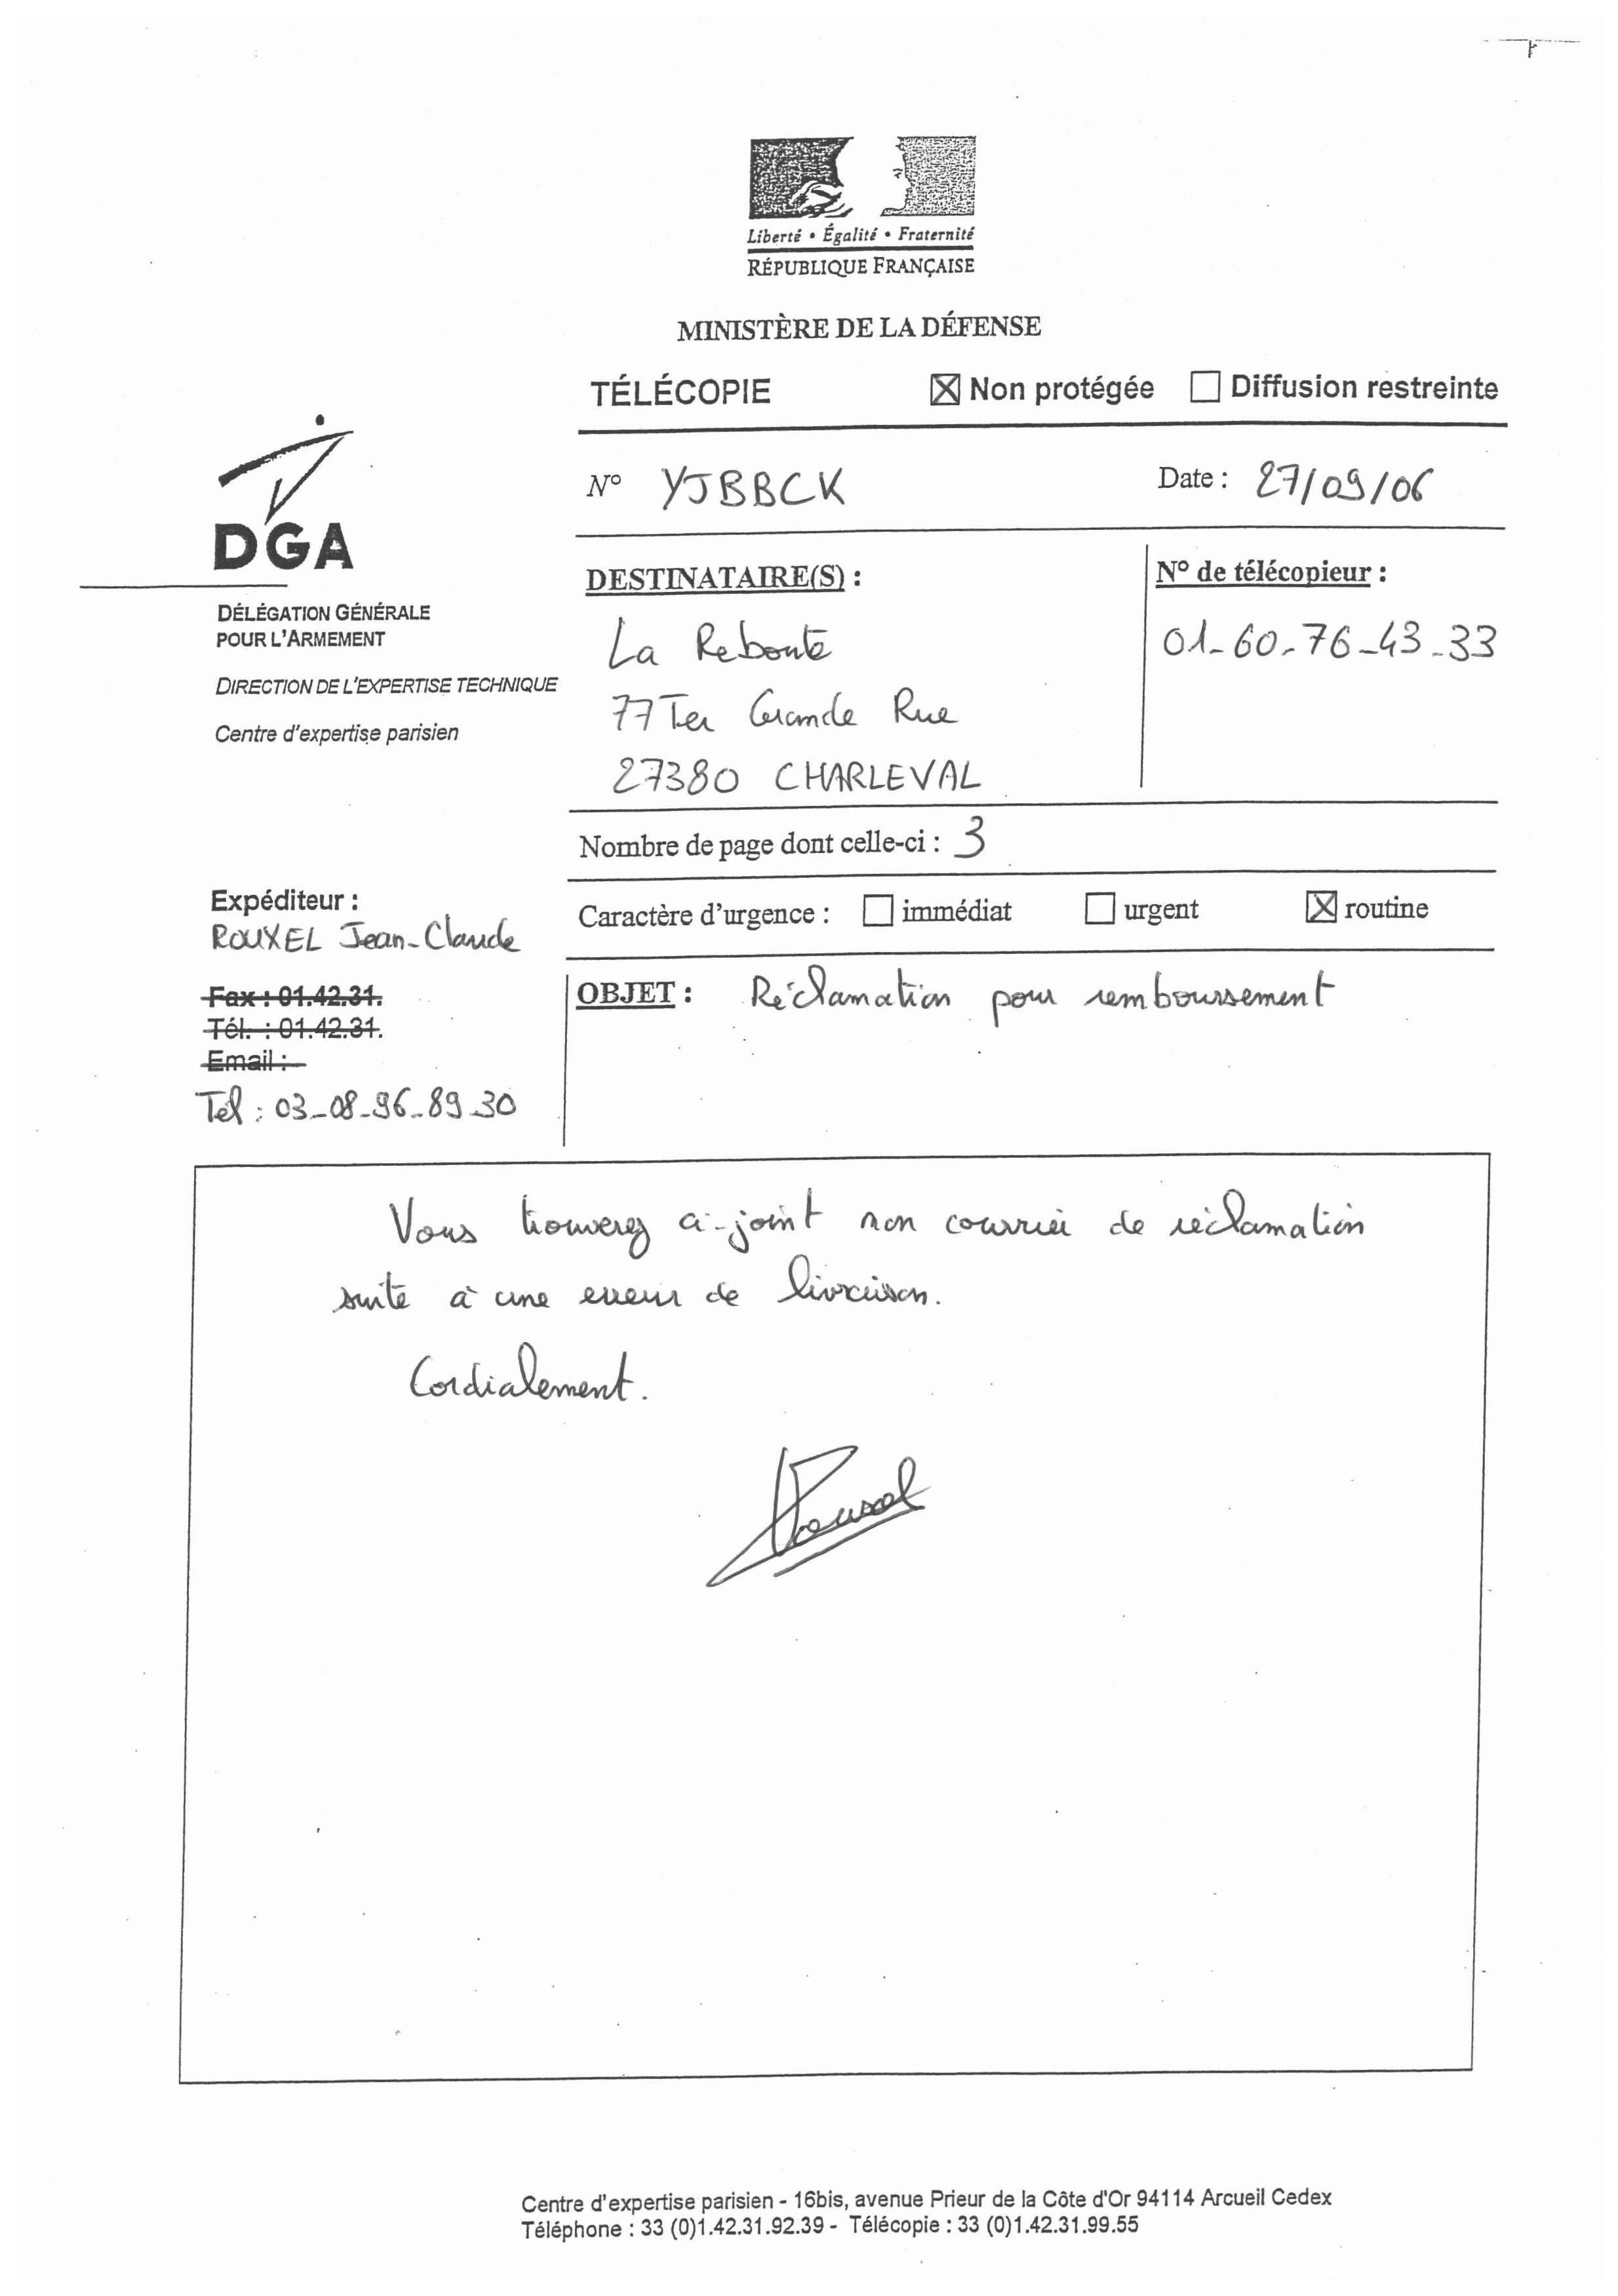 Liberté • Égalité • Fraternité
RÉPUBLIQUE FRANÇAISE
MINISTÈRE DE LA DÉFENSE
TÉLÉCOPIE ☒ Non protégée ☐ Diffusion restreinte
N° YJBBCK Date : 27/09/06
DGA
DÉLÉGATION GÉNÉRALE
POUR L'ARMEMENT
DIRECTION DE L'EXPERTISE TECHNIQUE
Centre d'expertise parisien
DESTINATAIRE(S) :
La Reboute
77 Ter Grande Rue
27380 CHARLEVAL
N° de télécopieur :
01-60-76-43-33
Nombre de page dont celle-ci : 3
Expéditeur :
ROUXEL Jean-Claude
Caractère d'urgence : ☐ immédiat ☐ urgent ☒ routine
Fax : 01.42.31.
Tél. : 01.42.31.
Email :
Tel : 03-08-96-89-30
OBJET : Réclamation pour remboursement
Vous trouverez ci-joint mon courrier de réclamation
suite à une erreur de livraison.
Cordialement.
Rouxel
Centre d'expertise parisien - 16bis, avenue Prieur de la Côte d'Or 94114 Arcueil Cedex
Téléphone : 33 (0)1.42.31.92.39 - Télécopie : 33 (0)1.42.31.99.55